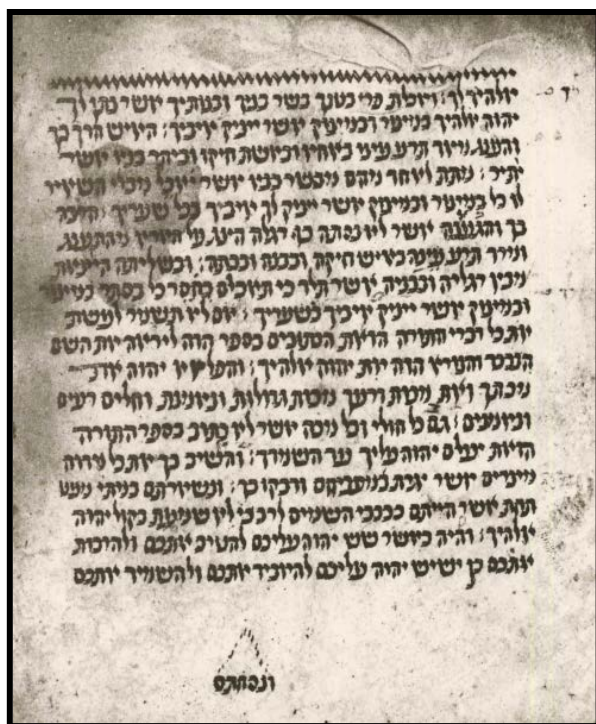 אלהיך לך: ואכלת פרי בטנך בשר בניך ובנתיך אשר נתן לך
יהוה אלהיך במצור ובמצוק אשר יציק איביך: האיש הרך בך
והענג מאד תרע עינו באחיו ובאשת חיקו וביתר בניו אשר
יתיר: מתת לאחד מהם מבשר בניו אשר יאכל מבלי השאיר
לו כל במצור ובמצוק אשר יציק לך איביך בכל שעריך: הרכה
בך והענגה אשר לא נסתה כף רגלה הצג על הארץ מהתענג
ומרך תרע עינה באיש חיקה ובבנה ובבתה: ובשליתה היצאת
מבין רגליה ובבניה אשר תלד כי תאכלם בחסר כל בסתר במצור
ובמצוק אשר יציק איביך בשעריך: אם לא תשמר לעשות
את כל דברי התורה הזאת הכתובים בספר הזה ליראה את השם
הנכבד והנורא הזה את יהוה אלהיך: והפליא יהוה את
מכתך ואת מכות זרעך מכות גדולות ונאמנות וחלים רעים
ונאמנים: גם כל חולי וכל מכה אשר לא כתוב בספר התורה
הזאת יעלם יהוה עליך עד השמדך: והשיב בך את כל מדוה
מצרים אשר יגרת מפניהם ודבקו בך: ונשארתם במתי מעט
תחת אשר הייתם ככוכבי השמים לרב כי לא שמעת בקול יהוה
אלהיך: והיה כאשר שש יהוה עליכם להטיב אתכם ולהרבות
אתכם כן ישיש יהוה עליכם להאביד אתכם ולהשמיד אתכם
ונסחתם